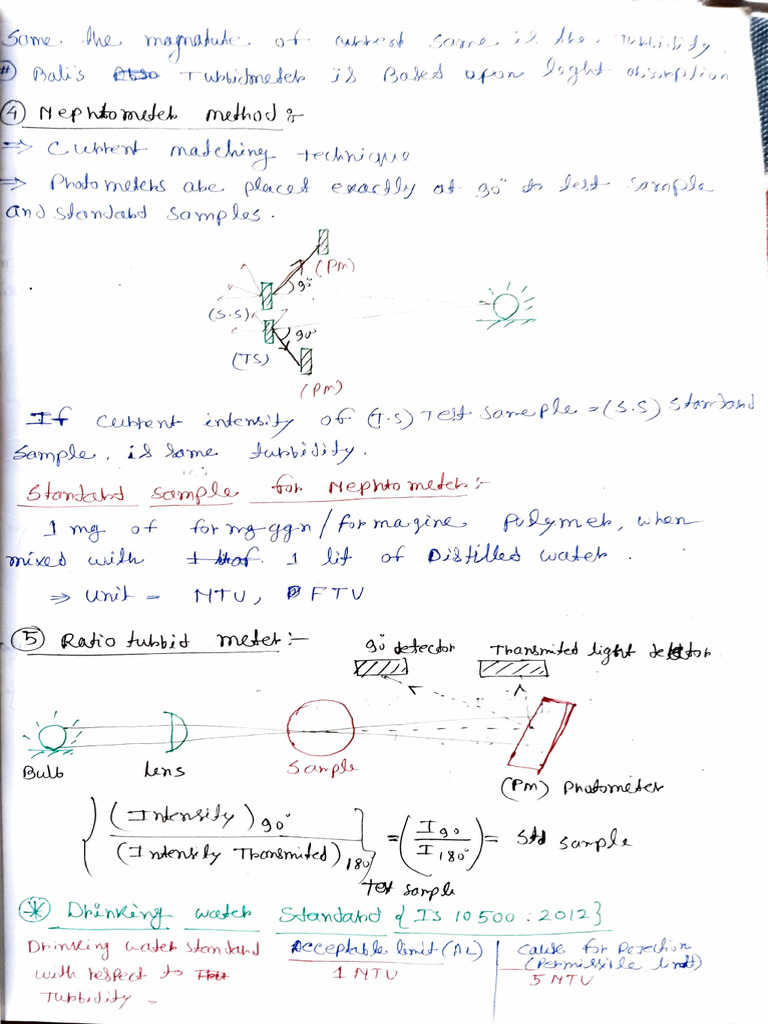 Same the magnatude of current same is the turbidity.
# Bali's Turbidmeter is Based upon light absorption
④ Nephtometer method:-
⇒ Current matching technique
⇒ Photometers are placed exactly at 90° to test sample
and standard samples.
(PM)
90°
(S.S)
90°
(TS)
(PM)
If current intensity of (T.S) Test sameple = (S.S) Standard
Sample. is same turbidity.
Standard sample for Nephtometer:-
1 mg of /formagine polymer, when
mixed with 1 lit of Distilled water.
⇒ Unit = NTU, FTU
⑤ Ratio turbid meter:-
90° detector Transmited light detector
Bulb Lens Sample
(PM) Photometer
{(Intensity)90° / (Intensity Transmited)180°} Test sample = (I90 / I180°) = Std sample
* Drinking water Standard {IS 10500:2012}
Drinking water standard Acceptable limit (AL) Cause for Rejection
with respect to 1 NTU (Permissible limit)
Turbidity = 5 NTU